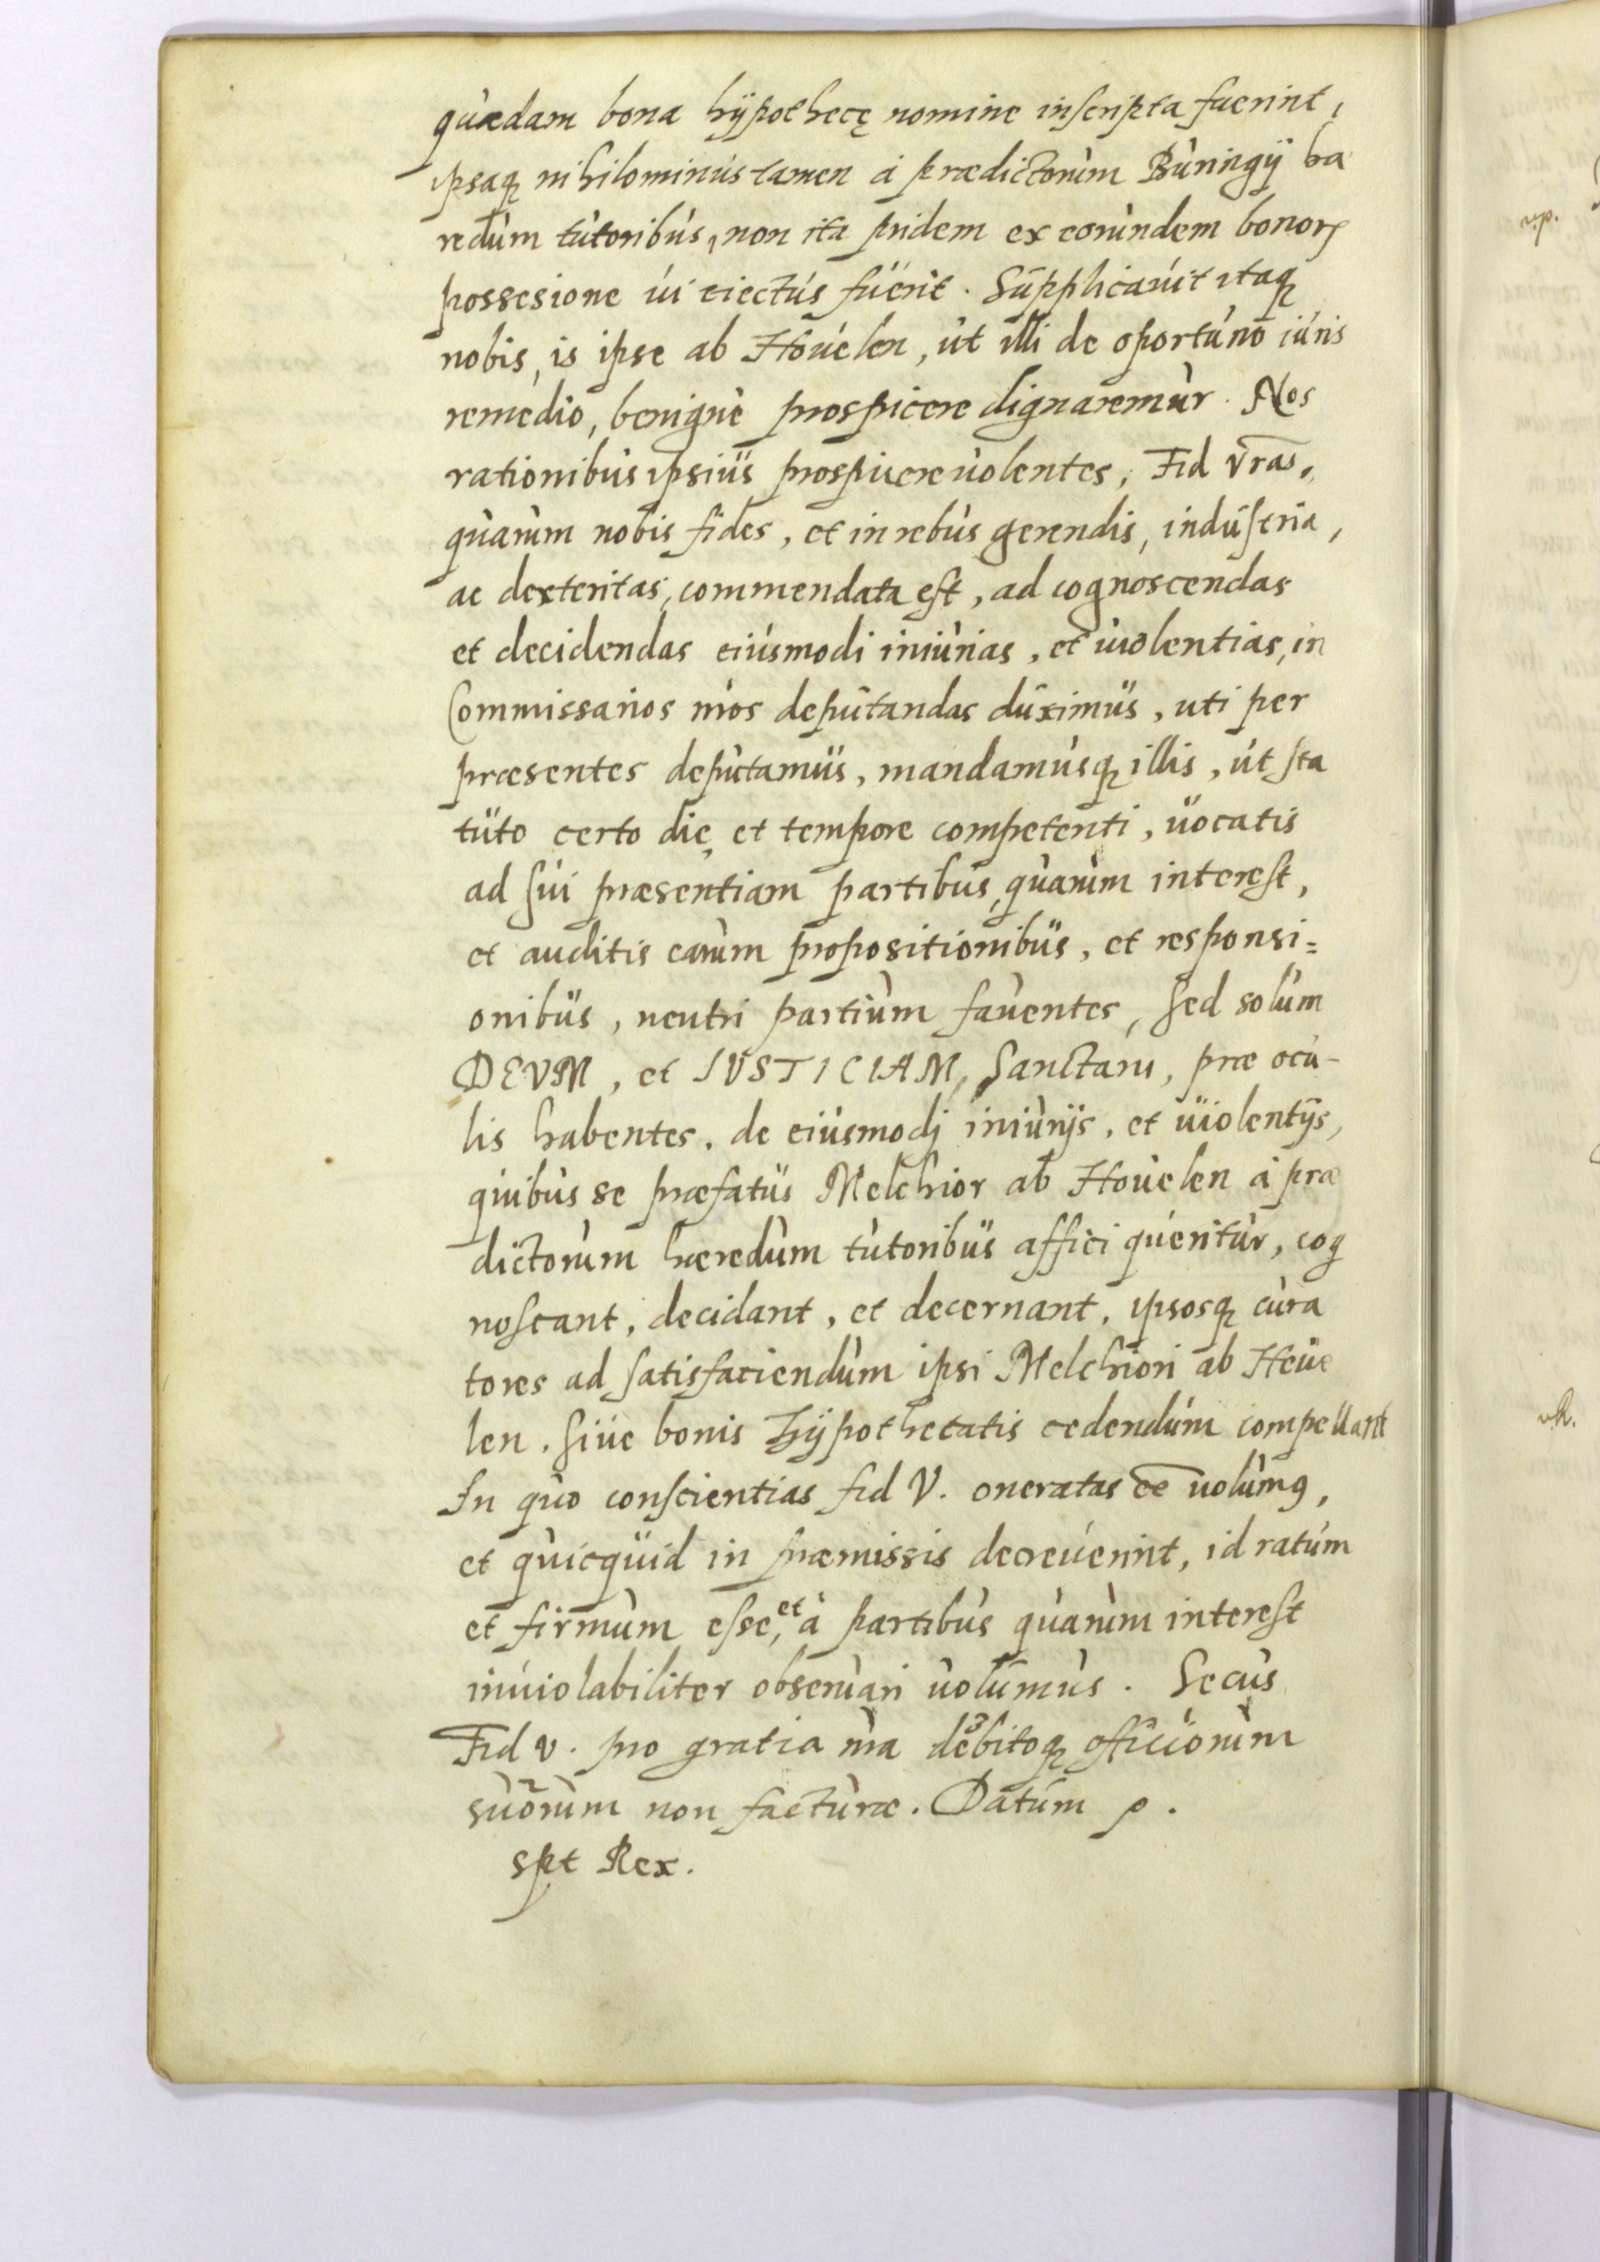 quædam bona hÿpothecę nomine inscripta fuerint,
ipsaq nihilominus tamen à prædictorum Buningij hæ
redum tutoribus, non ita pridem ex eorundem bonorꝝ
possesione ui eiectus fuerit. Supplicauit itaq
nobis, is ipse ab Houelen, ut illi de oportuno iuris
remedio, benigne prospicere dignaremur. Nos
rationibus ipsius prospicere uolentes, Fid vras,
quarum nobis fides, et in rebus gerendis, industria,
ac dexteritas, commendata est, ad cognoscendas
et decidendas eiusmodi iniurias, et uiolentias, in
Commissarios nros deputandas duximus, uti per
præsentes deputamus, mandamusq illis, ut sta
tuto certo die, et tempore competenti, uocatis
ad sui præsentiam partibus, quarum interest,
et auditis earum propositionibus, et responsi=
onibus, neutri partium fauentes, sed solum
DEVM, et IVSTICIAM, Sanctam, præ ocu-
lis habentes, de eiusmodi iniurijs, et uiolentijs,
quibus se præfatus Melchior ab Houelen à præ
dictorum hæredum tutoribus affici queritur, cog
noscant, decidant, et decernant, ipsosq cura
tores ad satisfaciendum ipsi Melchiori ab Heue
len. siue bonis hÿpothecatis cedendum compellant
In quo conscientias fid V. oneratas ee uolumꝯ,
et quicquid in præmissis decreuerint, id ratum
et firmum esse, et à partibus quarum interest
inuiolabiliter obseruari uolumus. Secus
Fid v. pro gratia nra debitoq officiorum
suorum non facturæ. Datum p.
spt Rex.